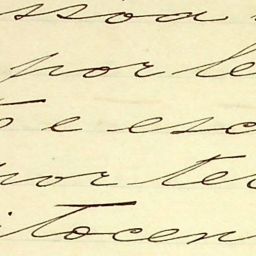 ssoa
por le
e esc
por ter
itocen